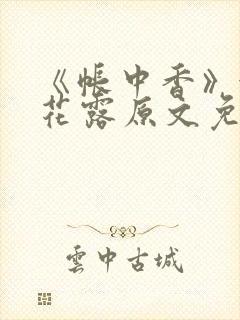 《帐中香》
花露原文免
雲中古城